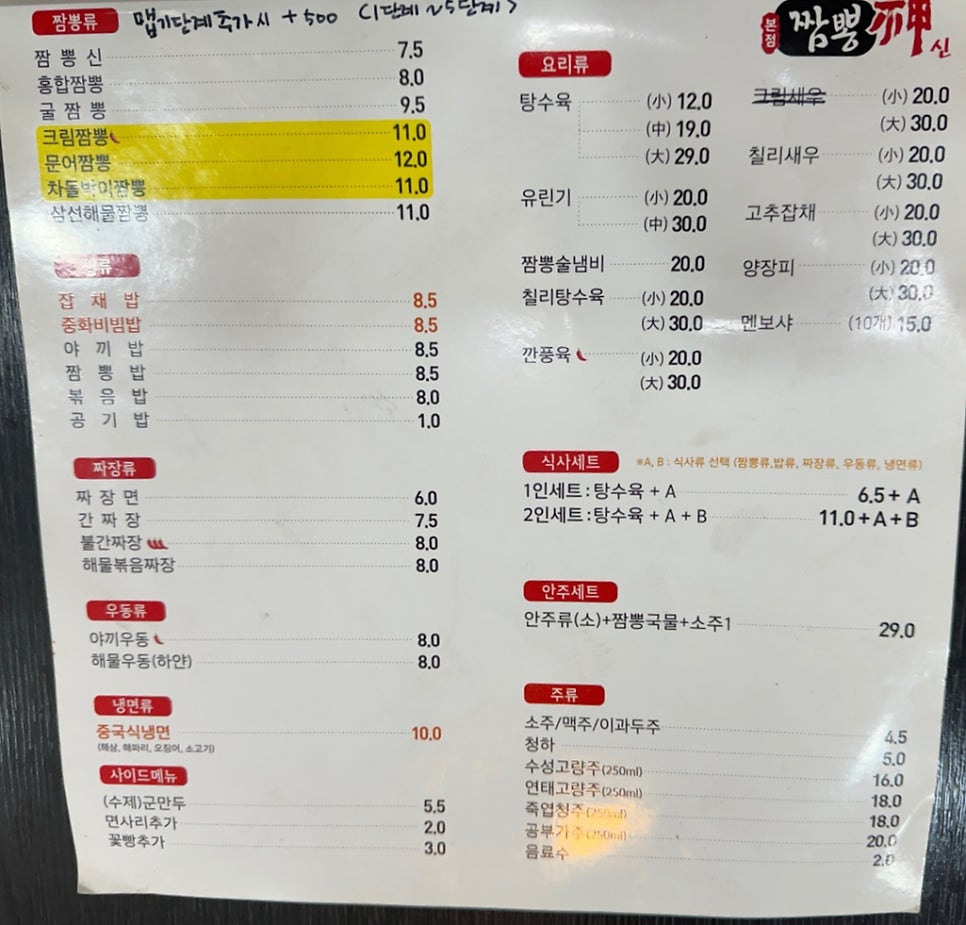 짬뽕류 맵기단계추가시 +500 (1단계~5단계)
짬뽕신 7.5
홍합짬뽕 8.0
굴짬뽕 9.5
크림짬뽕 11.0
문어짬뽕 12.0
차돌박이짬뽕 11.0
삼선해물짬뽕 11.0
류
잡채밥 8.5
중화비빔밥 8.5
야끼밥 8.5
짬뽕밥 8.5
볶음밥 8.0
공기밥 1.0
짜장류
짜장면 6.0
간짜장 7.5
불간짜장 8.0
해물볶음짜장 8.0
우동류
야끼우동 8.0
해물우동(하얀) 8.0
냉면류
중국식냉면 10.0
(해삼, 해파리, 오징어, 소고기)
사이드메뉴
(수제)군만두 5.5
면사리추가 2.0
꽃빵추가 3.0
본점 짬뽕神신
요리류
탕수육 (小) 12.0
(中) 19.0
(大) 29.0
유린기 (小) 20.0
(中) 30.0
짬뽕술냄비 20.0
칠리탕수육 (小) 20.0
(大) 30.0
깐풍육 (小) 20.0
(大) 30.0
크림새우 (小) 20.0
(大) 30.0
칠리새우 (小) 20.0
(大) 30.0
고추잡채 (小) 20.0
(大) 30.0
양장피 (小) 20.0
(大) 30.0
멘보샤 (10개) 15.0
식사세트 ※A, B : 식사류 선택 (짬뽕류,밥류, 짜장류, 우동류, 냉면류)
1인세트 : 탕수육 + A 6.5 + A
2인세트 : 탕수육 + A + B 11.0 + A + B
안주세트
안주류(소)+짬뽕국물+소주1 29.0
주류
소주/맥주/이과두주 4.5
청하 5.0
수성고량주(250ml) 16.0
연태고량주(250ml) 18.0
죽엽청주(250ml) 18.0
공부가주(250ml) 20.0
음료수 2.0